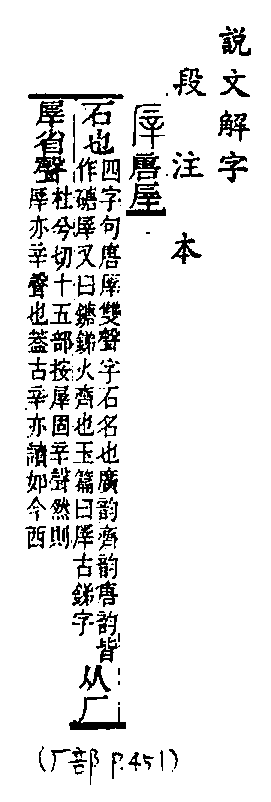 說文解字
段注本
厗唐厗
石也
四字句唐厗雙聲字石名也廣韵齊韵唐韵皆
作磄厗又曰鎕銻火齊也玉篇曰厗古銻字
从厂
屖省聲
杜兮切十五部按屖固辛聲然則
厗亦辛聲也蓋古辛亦讀如今西
(厂部 P.451)